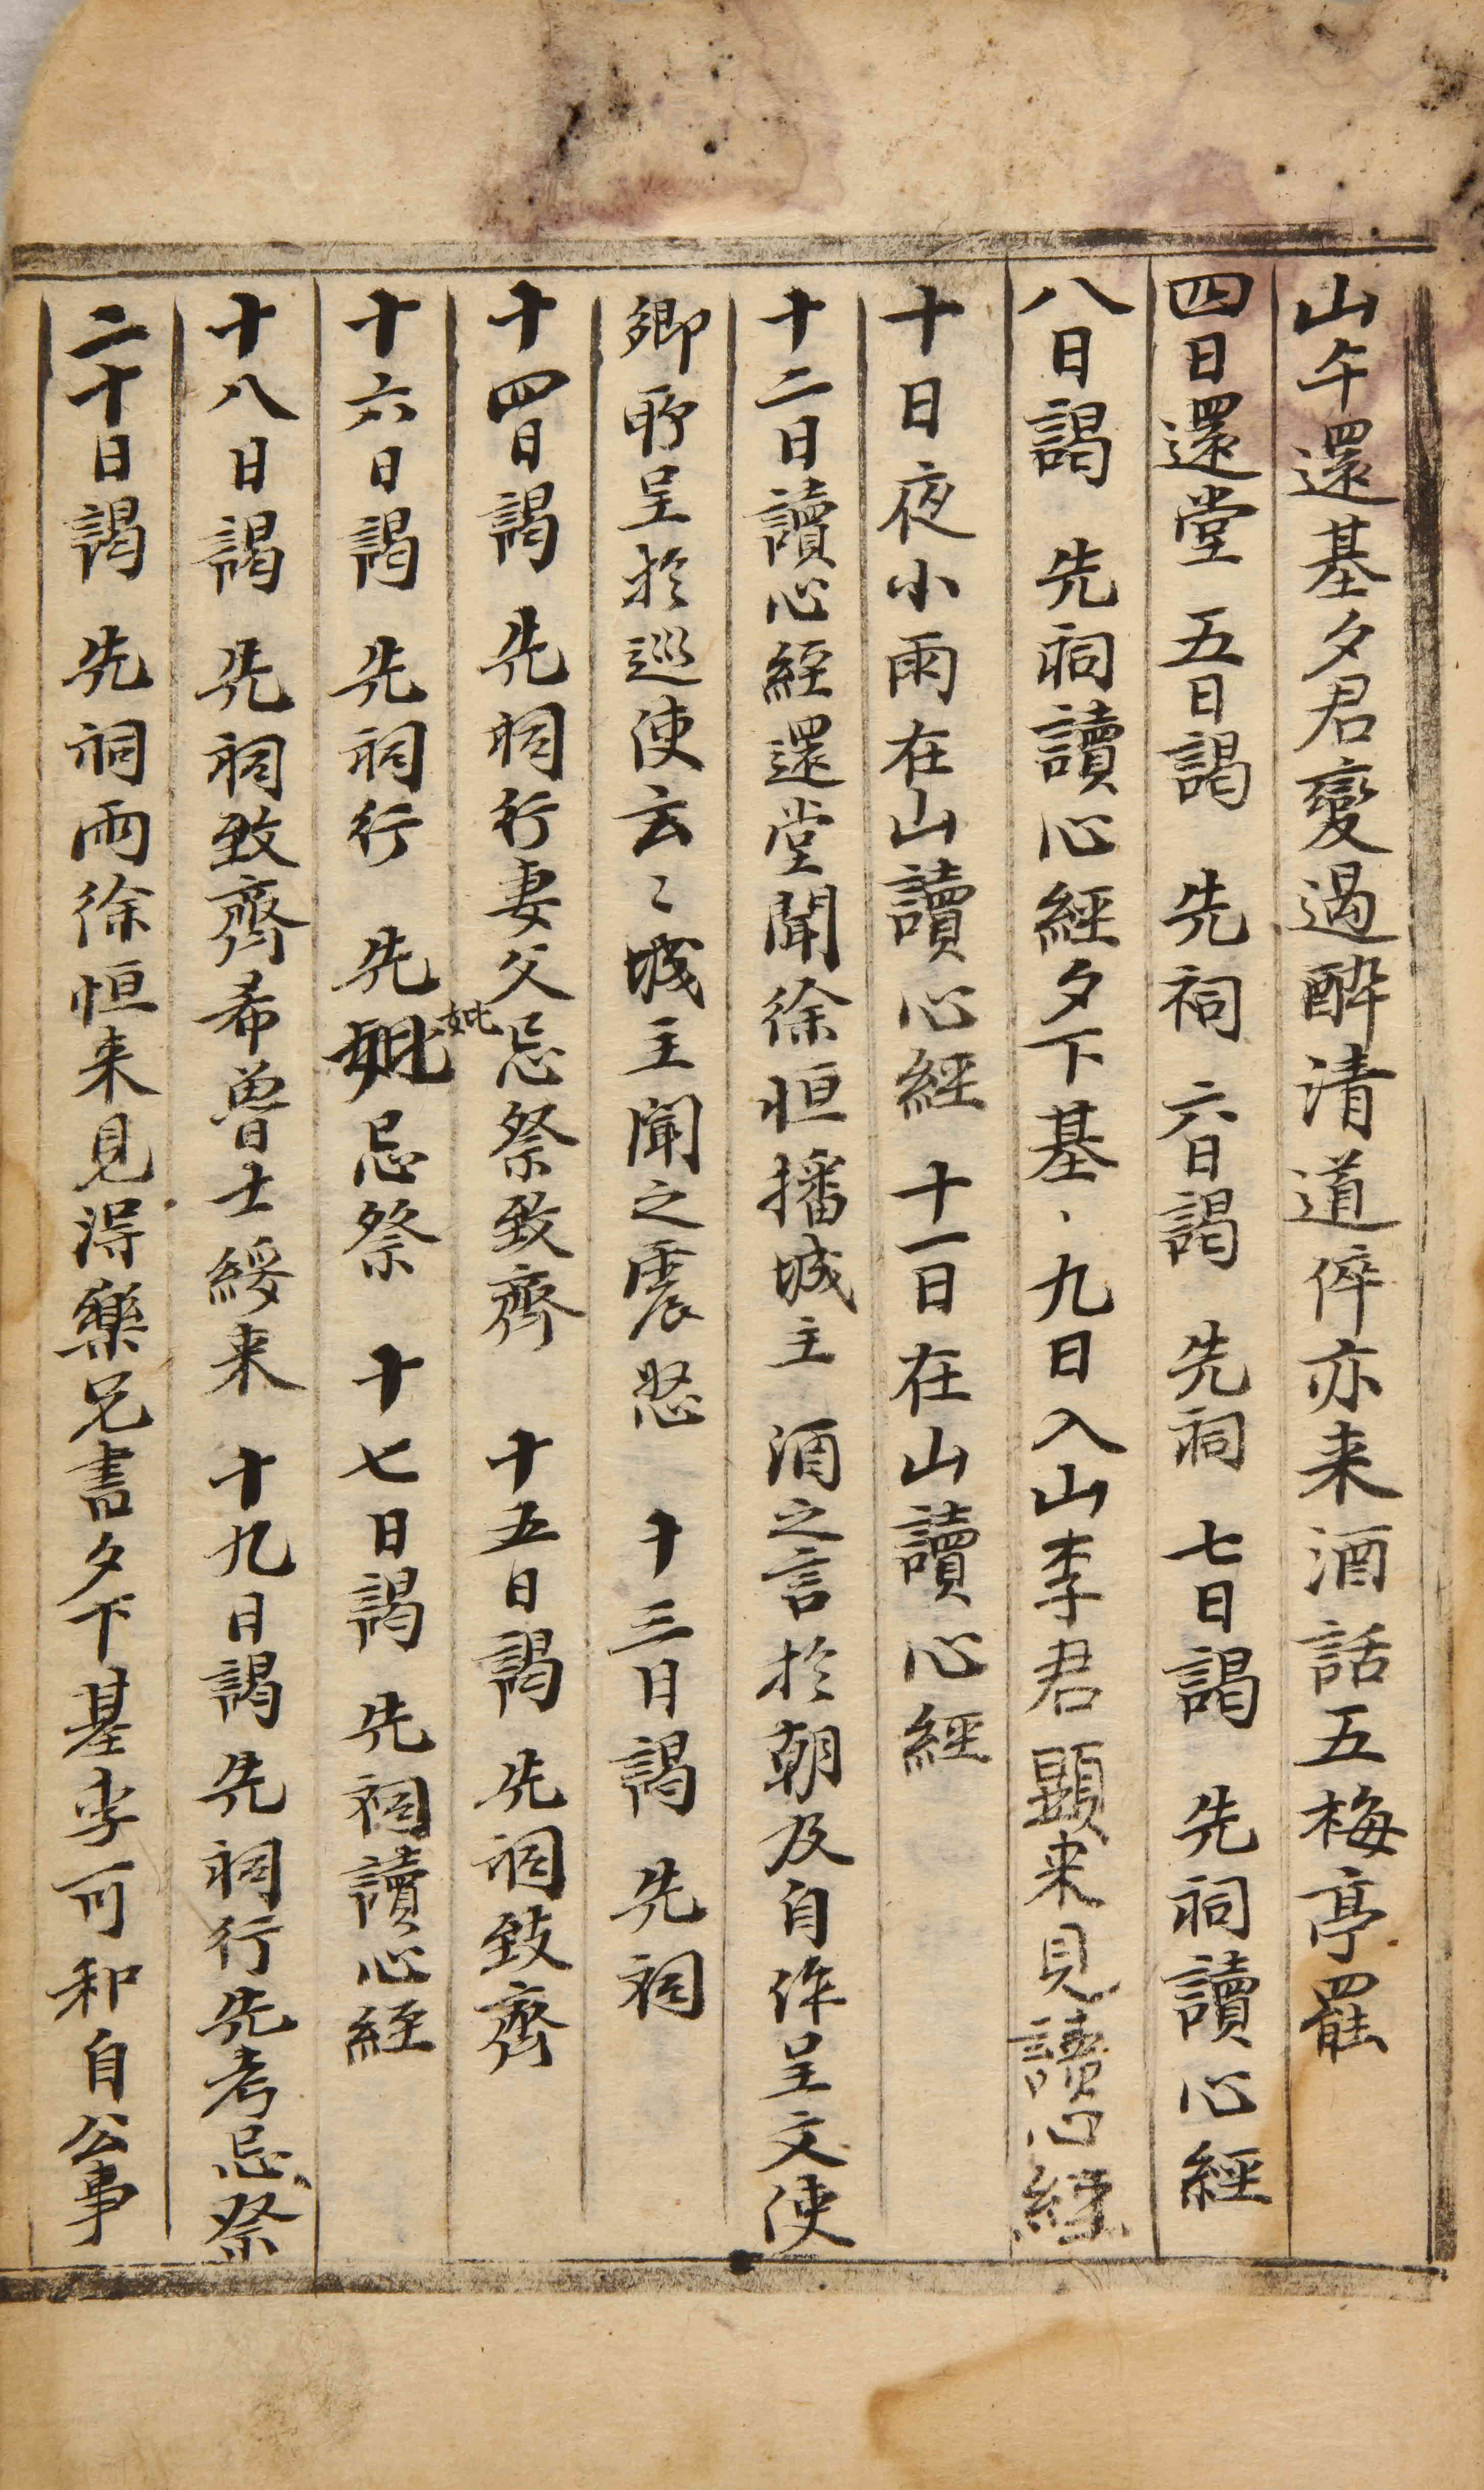 山午還基夕君變過醉清道倅亦来酒話五梅亭罷
四日還堂 五日謁 先祠 六日謁 先祠 七日謁 先祠讀心經
八日謁 先祠讀心經夕下基、九日入山李君顯来見讀心經
十日夜小雨在山讀心經 十一日在山讀心經
十二日讀心經還堂聞徐恒播城主 酒之言於朝及自作呈文使
鄉所呈於巡使云〻城主聞之震怒 十三日謁 先祠
十四日謁 先祠行妻父忌祭致齊 十五日謁 先祠致齊
十六日謁 先祠行 先妣忌祭 十七日謁 先祠讀心經
妣
十八日謁 先祠致齊希魯士綏来 十九日謁 先祠行先考忌祭
二十日謁 先祠雨徐恒来見得藥兄書夕下基李可和自公事